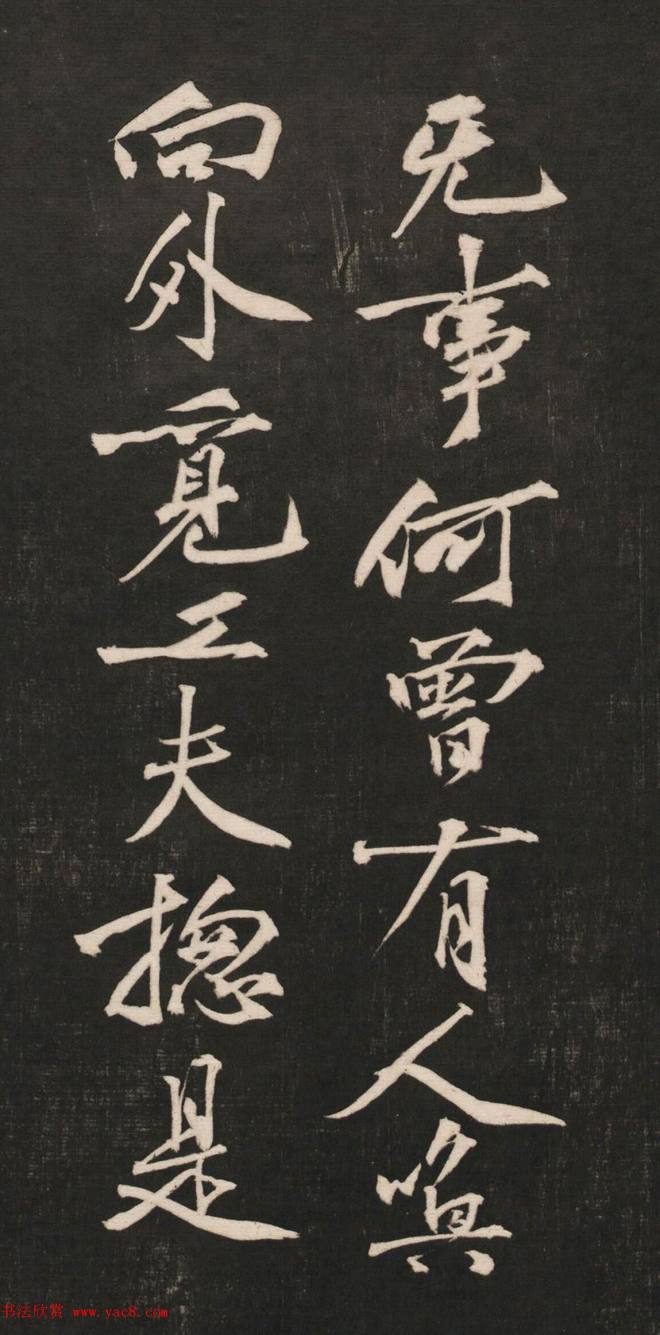 无事何曾有人喚
向外覓工夫揔是
书法欣赏 www.yac8.com